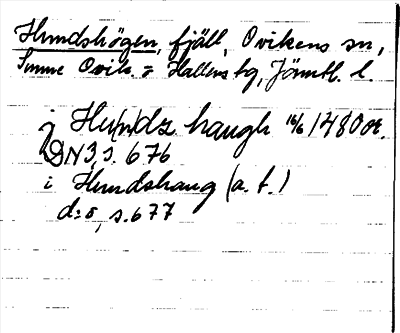 Hundshögen, fjäll, Ovikens sn,
Sunne Ovik. o Hallens tg, Jämtl. l.
i Hu(n)dz haugh 16/6 1480 or.
DN3, s. 676
i Hundshaug (a. t.)
d:o, s. 677